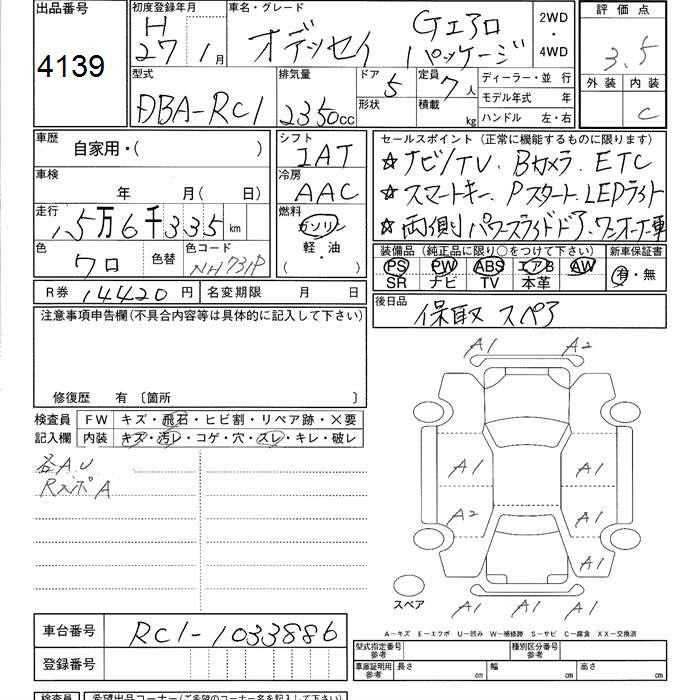 出品番号
4139
初度登録年月
H
27 1月
車名・グレード
オデッセイ Gエアロ
パッケージ
2WD
・
4WD
評価点
3.5
外装 内装
C
型式
DBA-RC1
排気量
2350cc
ドア 5
形状
定員 7人
積載 kg
ディーラー・並 行
モデル年式 年
ハンドル 左・右
車歴
自家用・( )
車検
年 月( 日)
走行
5万6千335km
色
クロ
色替
色コード
NH731P
シフト
IAT
冷房
AAC
燃料
ガソリン
軽・油
( )
セールスポイント(正常に機能するものに限ります)
☆ナビ/TV. Bカメラ. ETC
☆スマートキー. Pスタート. LEDライト
☆両側パワースライドドア. ワンオーナー車
装備品(純正品に限り○をつけて下さい)
PS PW ABS エアB AW
SR ナビ TV 本革
新車保証書
有・無
R券 14420円
名変期限 月 日
後日品
保取 スペア
注意事項申告欄(不具合内容等は具体的に記入して下さい)
修復歴 有〔箇所 〕
検査員
記入欄
FW キズ・飛石・ヒビ割・リペア跡・×要
内装 キズ・汚レ・コゲ・穴・スレ・キレ・破レ
各A.U
RスポA
A1 A2
A1 A1
A2 A1
A1
A1 A1 A1
スペア
A-キズ E-エクボ U-凹み W-補修跡 S-サビ C-腐食 XX-交換済
車台番号
RC1-1033886
登録番号
型式指定番号
参考
種別区分番号
参考
車庫証明用
参考
長さ cm 幅 cm 高さ cm
検査員 希望出品コーナー(ご希望のコーナー名を記入下さい)